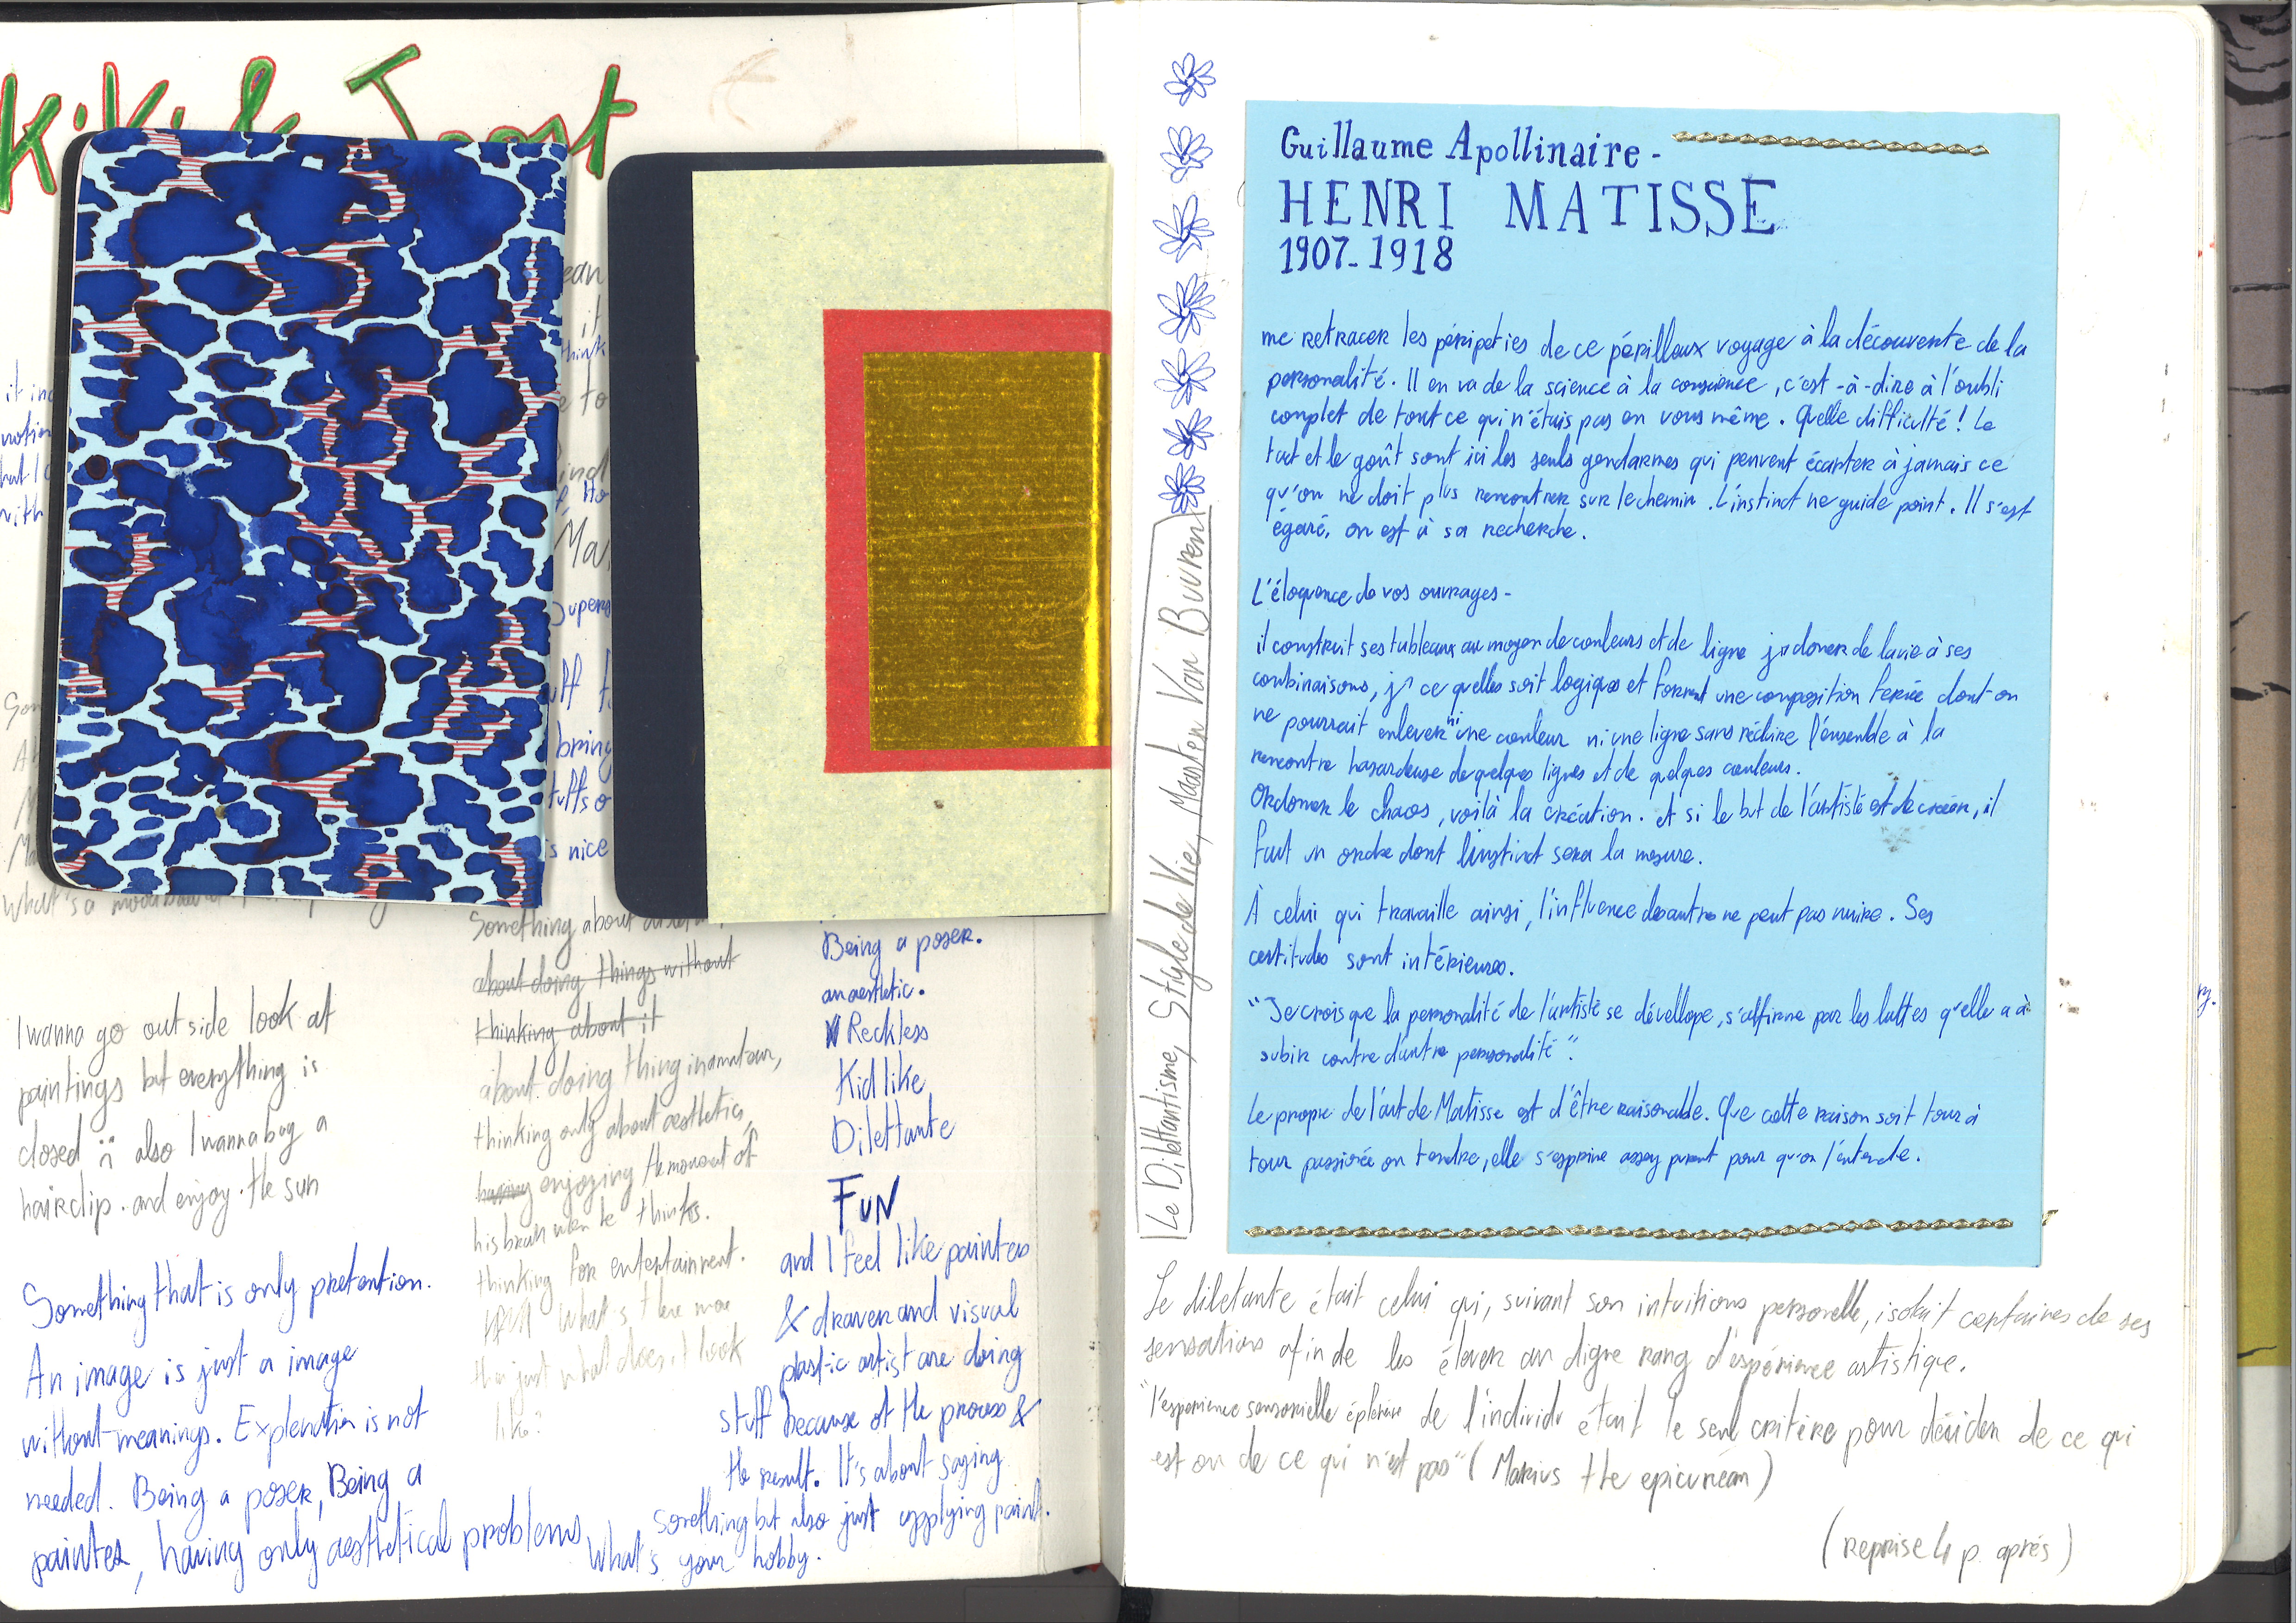 Kiki & Joost
ean
it
think
e to
it inc
notion
but I c
with
ind
Ma
Supers
uff f
bring
tuffs o
is nice
What's a moodboard
I wanna go outside look at
paintings but everything is
closed :( also I wanna buy a
hairclip. and enjoy. the sun
Something that is only pretention.
An image is just a image
without meanings. Explenation is not
needed. Being a poser, Being a
painter, having only aesthetical problems
What's your hobby.
Something about
about doing things without
thinking about it
about doing thing inamateur,
thinking only about aesthetics,
enjoying the movement of
his brain when he thinks.
thinking for entertainment.
What's there more
than just what does it look
like?
Being a poser.
an aesthetic.
Reckless
Kid like
Dilettante
FUN
and I feel like painters
& drawer and visual
plastic artist are doing
stuff because of the process &
the result. It's about saying
something but also just applying paint.
Le Dilettantisme, Style de Vie, Maarten Van Buuren
Guillaume Apollinaire -
HENRI MATISSE
1907-1918
me retracer les péripeties de ce périlleux voyage à la découverte de la
personalité. Il en va de la science à la conscience, c'est-à-dire à l'oubli
complet de tout ce qui n'étais pas en vous même. Quelle difficulté ! Le
tact et le goût sont ici les seuls gendarmes qui peuvent écarter à jamais ce
qu'on ne doit plus rencontrer sur le chemin. L'instinct ne guide point. Il s'est
égaré, on est à sa recherche.
L'éloquence de vos ouvrages -
il construit ses tableaux au moyen de couleurs et de ligne jsq donner de la vie à ses
combinaisons, jsq ce quelles soit logiques et forment une composition fermée dont on
ne pourrait enlever ni une couleur ni une ligne sans réduire l'ensemble à la
rencontre hasardeuse de quelques lignes et de quelques couleurs.
Ordonner le chaos, voilà la création. et si le but de l'artiste est de créer, il
faut un ordre dont l'instinct sera la mesure.
À celui qui travaille ainsi, l'influence des autre ne peut pas nuire. Ses
certitudes sont intérieures.
"Je crois que la personalité de l'artiste se dévellope, s'affirme par les luttes qu'elle a à
subir contre d'autre personalité".
Le propre de l'art de Matisse est d'être raisonable. Que cette raison soit tour à
tour passionée ou tendre, elle s'exprime assez purent pour qu'on l'entende.
Le diletante était celui qui, suivant son intuitions personelle, isolait certaines de ses
sensations afin de les élever au digne rang d'expérience artistique.
"l'experience sensorielle éphémère de l'individu était le seul critère pour décider de ce qui
est ou de ce qui n'est pas" (Marius the epicurean)
(reprise 4 p. après)